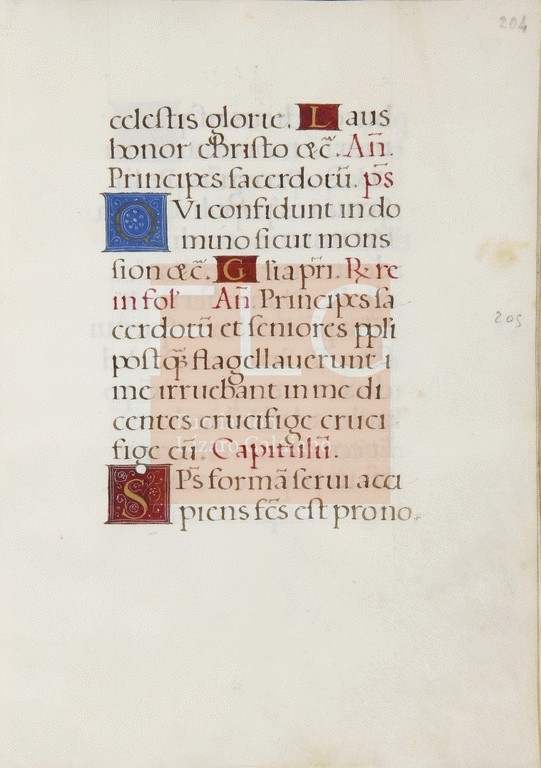 204
celestis glorie. L aus
honor christo &c̃. Añ.
Principes sacerdotũ. ps
QVi confidunt in do
mino sicut mons
sion &c̃. G lia pr̃i. ℞ re
in fol' Añ. Principes sa
cerdotũ et seniores ppl̃i
postq̃s flagellauerunt i
me irruebant in me di
centes crucifige cruci
fige eũ. Capitulũ.
SPs formã serui acci
piens fc̃s est prono.
205